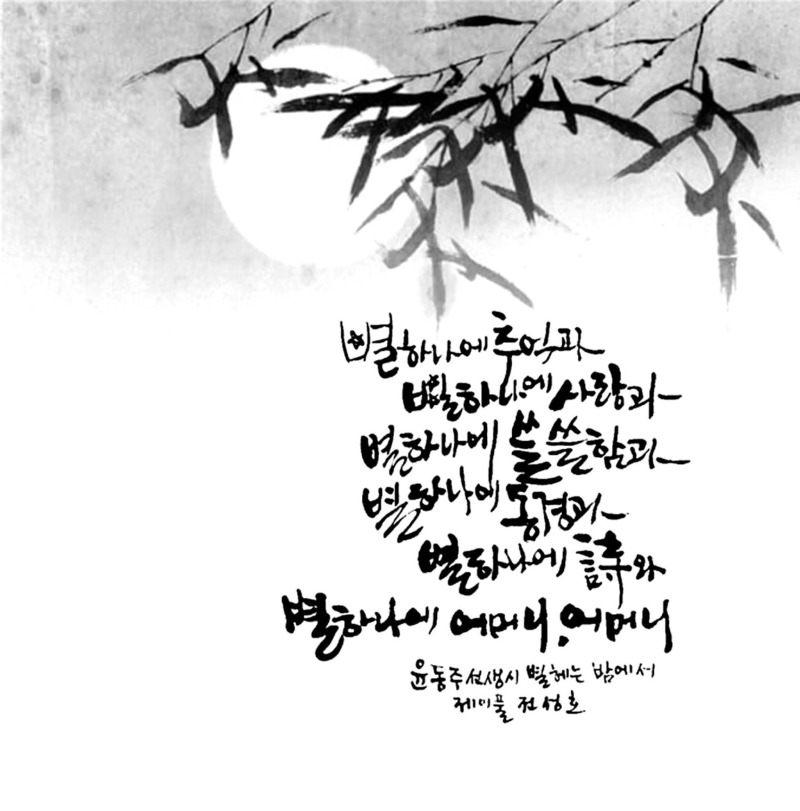 별하나에 추억과
별하나에 사랑과
별하나에 쓸쓸함과
별하나에 동경과
별하나에 詩와
별하나에 어머니, 어머니
윤동주선생시 별헤는 밤에서
제이풀 전성호